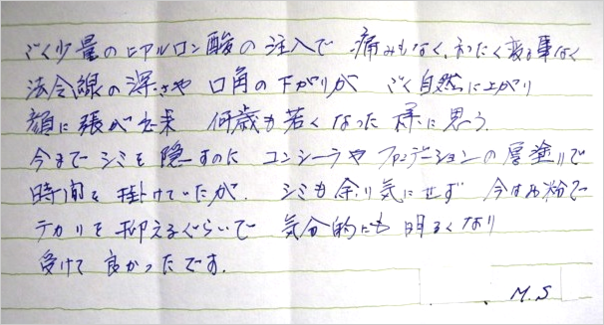 ごく少量のヒアルロン酸の注入で 痛みもなく、かたく変る事なく
法令線の深さや 口角の下がりが ごく自然に上がり
顔に張が出来 何歳も若くなった様に思う。
今まで シミを隠すのに コンシーラやファンデーションの層塗りで
時間を掛けていたが、シミも余り気にせず 今はお粉で
テカリを抑えるぐらいで 気分的にも明るくなり
受けて良かったです。
M.S